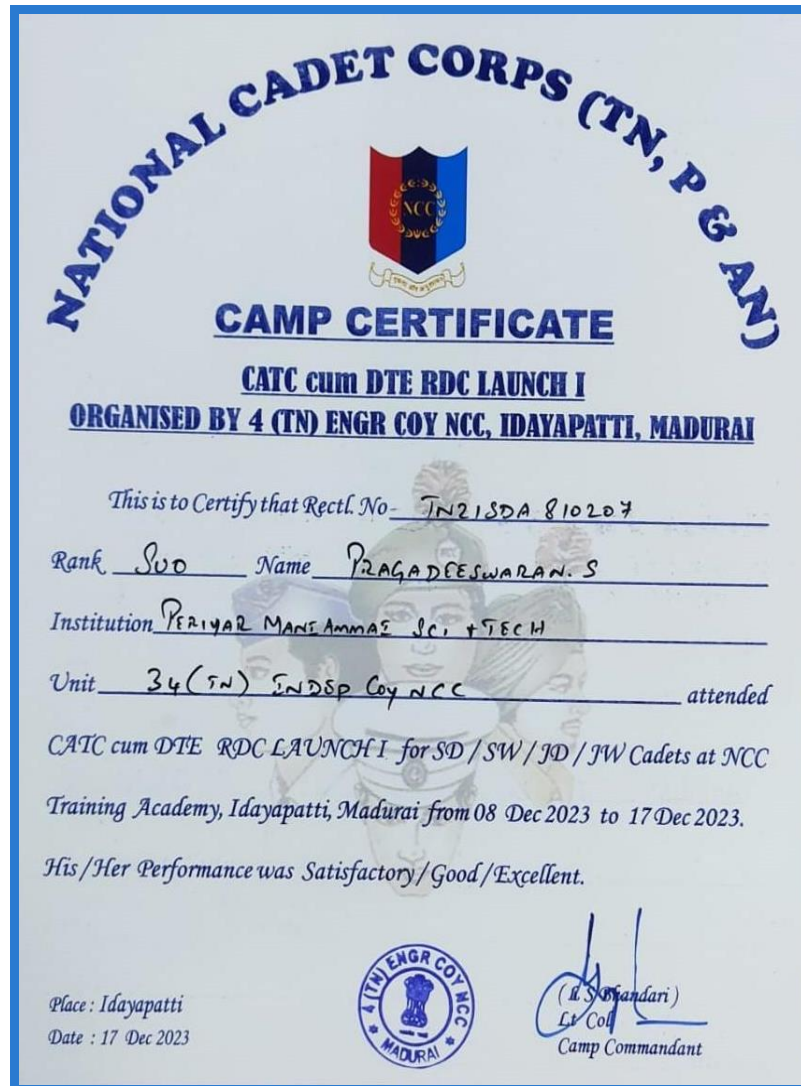 NATIONAL CADET CORPS (TN, P & AN)
NCC
CAMP CERTIFICATE
CATC cum DTE RDC LAUNCH I
ORGANISED BY 4 (TN) ENGR COY NCC, IDAYAPATTI, MADURAI
This is to Certify that Rectl. No- TN21SDA 810207
Rank SUO Name PRAGADEESWARAN. S
Institution PERIYAR MANIAMMAI SCI + TECH
Unit 34 (TN) INDEP Coy NCC attended
CATC cum DTE RDC LAUNCH I for SD / SW / JD / JW Cadets at NCC
Training Academy, Idayapatti, Madurai from 08 Dec 2023 to 17 Dec 2023.
His / Her Performance was Satisfactory / Good / Excellent.
4 (TN) ENGR COY NCC
MADURAI
Place : Idayapatti
Date : 17 Dec 2023
S Bhandari )
Lt Col
Camp Commandant